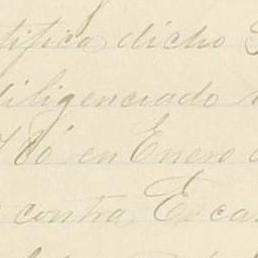 tifica dicho
diligenciado
en Enero
contra Esca